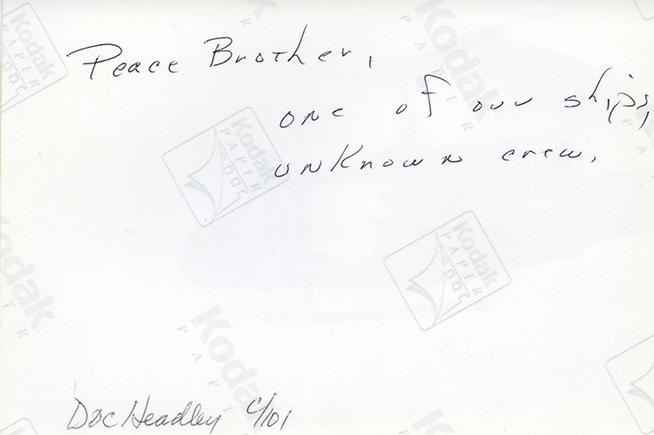 Peace Brother,
one of our ships,
unknown crew.
Doc Headley C/101
Kodak
PAPER
Kodak
PAPER
Kodak
PAPER
Kodak
PAPER
Kodak
PAPER
Kodak
PAPER